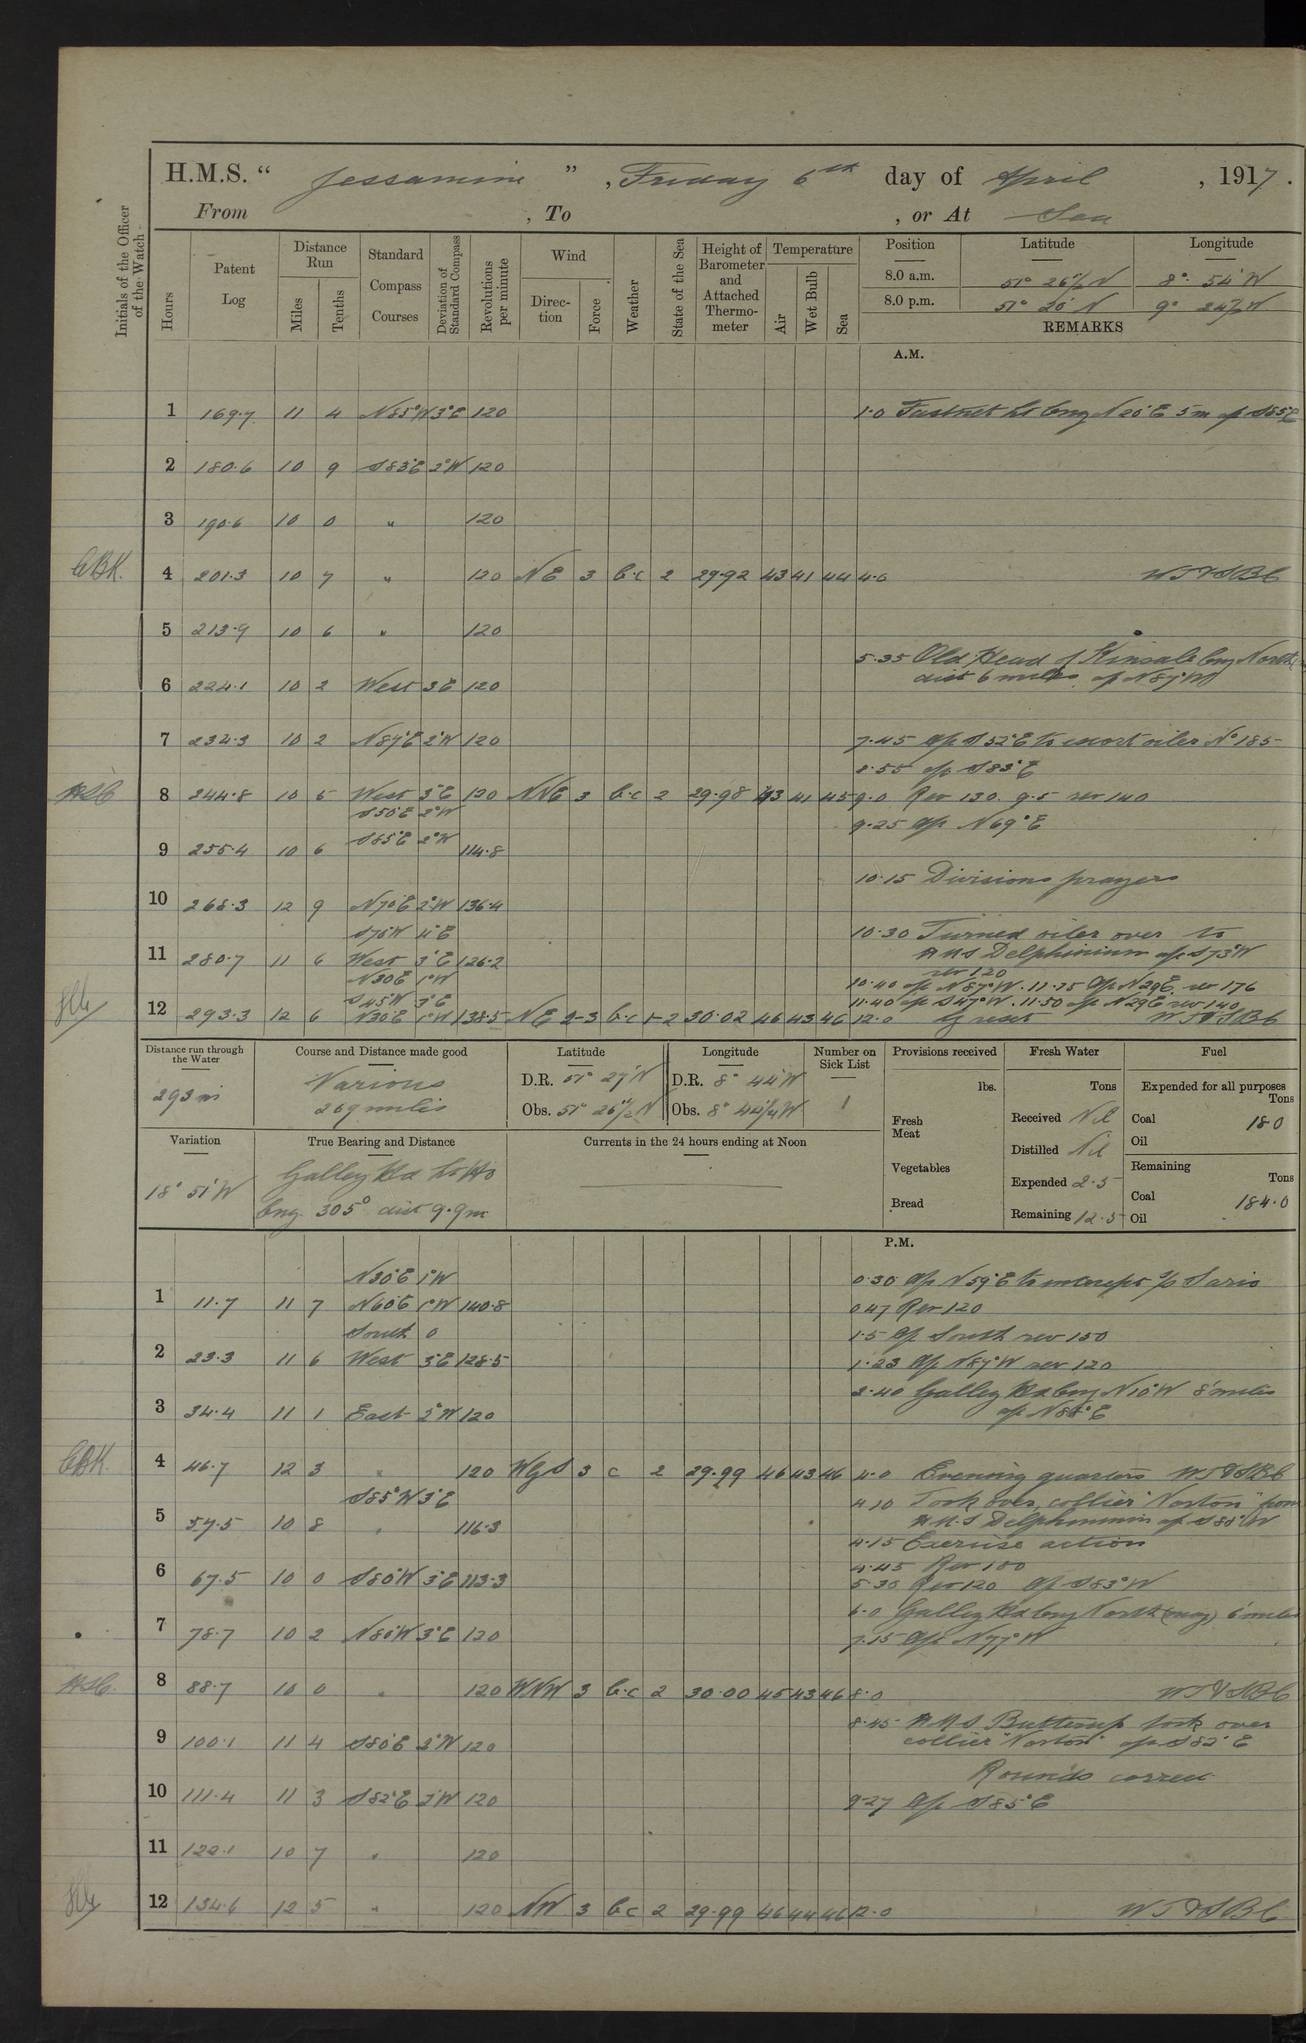 H.M.S. " Jessamine ", Friday 6th day of April, 1917.
From , To , or At Sea
Initials of the Officer of the Watch
Hours
Patent Log
Distance Run
Miles
Tenths
Standard Compass Courses
Deviation of Standard Compass
Revolutions per minute
Wind
Direc-tion
Force
Weather
State of the Sea
Height of Barometer and Attached Thermo-meter
Temperature
Air
Wet Bulb
Sea
Position Latitude Longitude
8.0 a.m. 51° 26½' N 8° 54' W
8.0 p.m. 51° 20' N 9° 24½' W
REMARKS
A.M.
1 169.7 11 4 N85°W 3°E 120 1.0 Fastnet Lt bng N20°E 5m a/c S85°E
2 180.6 10 9 S83°E 2°W 120
3 190.6 10 0 " 120
CBK. 4 201.3 10 7 " 120 NE 3 b.c 2 29.92 43 41 44 4.0
5 213.9 10 6 " 120
5.35 Old Head of Kinsale bng North
6 224.1 10 2 West 3°E 120 dist 6 miles a/c N87°W
7 234.3 10 2 N87°E 2°W 120 7.45 a/c S52°E to escort oiler No 185
8.55 a/c S83°E
8 244.8 10 5 West 3°E 120 NNE 3 b.c 2 29.98 43 41 45 9.0 Rev 130. 9.5 rev 140
S50°E 2°W
9.25 a/c N69°E
9 255.4 10 6 S85°E 2°W 114.8
10.15 Divisions prayers
10 268.3 12 9 N70°E 2°W 136.4
S75°W 4°E 10.30 Turned oiler over to
11 280.7 11 6 West 3°E 126.2 HMS Delphinium a/c S73°W
rev 120
N30°E 1°W 10.40 a/c N87°W. 11.25 a/c N29E. rev 176
S45W 3°E 11.40 a/c S47°W. 11.50 a/c N29E rev 140
12 293.3 12 6 N30°E 1°W 138.5 NE 2-3 b.c 1-2 30.02 46 43 46 12.0
Distance run through the Water
293 m
Course and Distance made good
Various
269 miles
Latitude
D.R. 51° 27' N
Obs. 51° 26½' N
Longitude
D.R. 8° 44' W
Obs. 8° 44¼' W
Number on Sick List
1
Provisions received
lbs.
Fresh Meat
Vegetables
Bread
Fresh Water
Tons
Received Nil
Distilled Nil
Expended 2.5
Remaining 12.5
Fuel
Expended for all purposes
Tons
Coal 18.0
Oil
Remaining
Tons
Coal 184.0
Oil
Variation
18° 51' W
True Bearing and Distance
Galley Hd Lt Ho
bng. 305° dist 9.9m
Currents in the 24 hours ending at Noon
P.M.
N30°E 1°W 0.30 a/c N59°E to intercept s/s Saris
1 11.7 11 7 N60°E 1°W 140.8 0.47 Rev 120
South 0 1.5 a/c South rev 150
2 23.3 11 6 West 3°E 128.5 1.23 a/c N87°W rev 120
2.40 Galley Hd bng N10°W 8 miles
3 34.4 11 1 East 2°W 120 a/c N88°E
CBK. 4 46.7 12 3 " 120 WbyS 3 c 2 29.99 46 43 46 4.0 Evening quarters
S85°W 3°E 4.10 Took over collier "Norton" from
5 57.5 10 8 " 116.3 H.M.S Delphinium a/c S88°W
4.15 Exercise action
4.45 Rev 100
6 67.5 10 0 S80°W 3°E 113.3 5.30 Rev 120 a/c S83°W
6.0 Galley Hd bng North (mag) 6 miles
7 78.7 10 2 N80°W 3°E 120 7.15 a/c N77°W
8 88.7 10 0 " 120 WNW 3 b.c 2 30.00 45 43 46 8.0
8.45 HMS Buttercup took over
9 100.1 11 4 S80°E 2°W 120 collier "Norton" a/c S82°E
Rounds correct
10 111.4 11 3 S82°E 2°W 120 9.27 a/c S85°E
11 122.1 10 7 " 120
12 134.6 12 5 " 120 NW 3 b.c 2 29.99 46 44 46 12.0